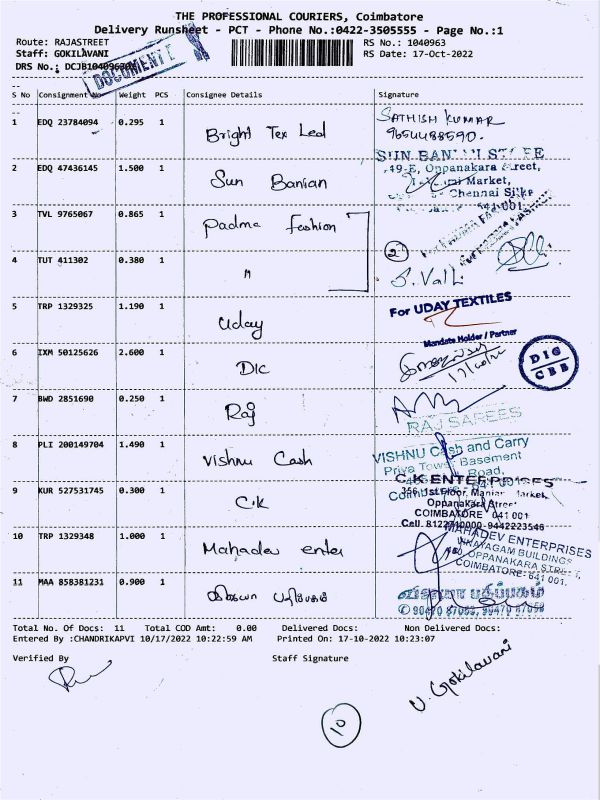 THE PROFESSIONAL COURIERS, Coimbatore
Delivery Runsheet - PCT - Phone No.:0422-3505555 - Page No.:1
Route: RAJASTREET RS No.: 1040963
Staff: GOKILAVANI RS Date: 17-Oct-2022
DRS No.:
DOCUMENT
S No Consignment No Weight PCS Consignee Details Signature
1 EDQ 23784094 0.295 1 Bright Tex Led SATHISH KUMAR
9654488590.
2 EDQ 47436145 1.500 1 Sun Banian SUN
49-E, Oppanakara Street,
Market,
Chennai Silks
641 001
3 TVL 9765067 0.865 1 Padma Fashion
4 TUT 411302 0.380 1 " 2 S. Valli
5 TRP 1329325 1.190 1 Uday For UDAY TEXTILES
Mandate Holder / Partner
6 IXM 50125626 2.600 1 DIC 17/10/22 DIG CBB
7 BWD 2851690 0.250 1 Raj RAJ SAREES
8 PLI 200149704 1.490 1 Vishnu Cash VISHNU Cash and Carry
Priya Tower Basement
Road,
9 KUR 527531745 0.300 1 C.K C.K ENTERPRISES
356, 1st Floor, Maniar Market,
Oppanakara Street
COIMBATORE 641 001
Cell. 8122740000-9442223546
10 TRP 1329348 1.000 1 Mahadev enter MAHADEV ENTERPRISES
VINAYAGAM BUILDINGS
OPPANAKARA STREET,
COIMBATORE-641 001.
11 MAA 858381231 0.900 1 விஜயா பதிப்பகம் விஜயா பதிப்பகம்
Total No. Of Docs: 11 Total COD Amt: 0.00 Delivered Docs: Non Delivered Docs:
Entered By :CHANDRIKAPVI 10/17/2022 10:22:59 AM Printed On: 17-10-2022 10:23:07
Verified By Staff Signature
U. Gokilavani
10